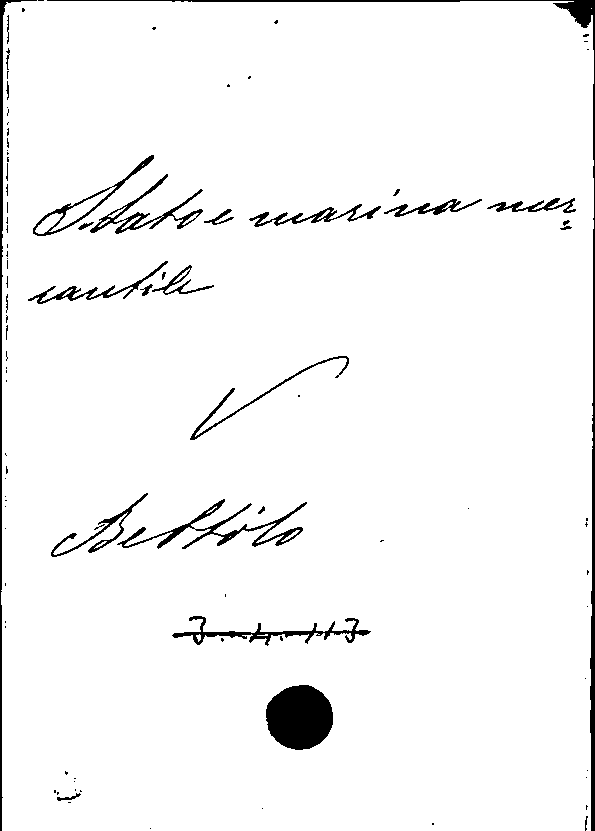 Stato e marina mer=
cantile
V
Bettólo
3.-4.-113